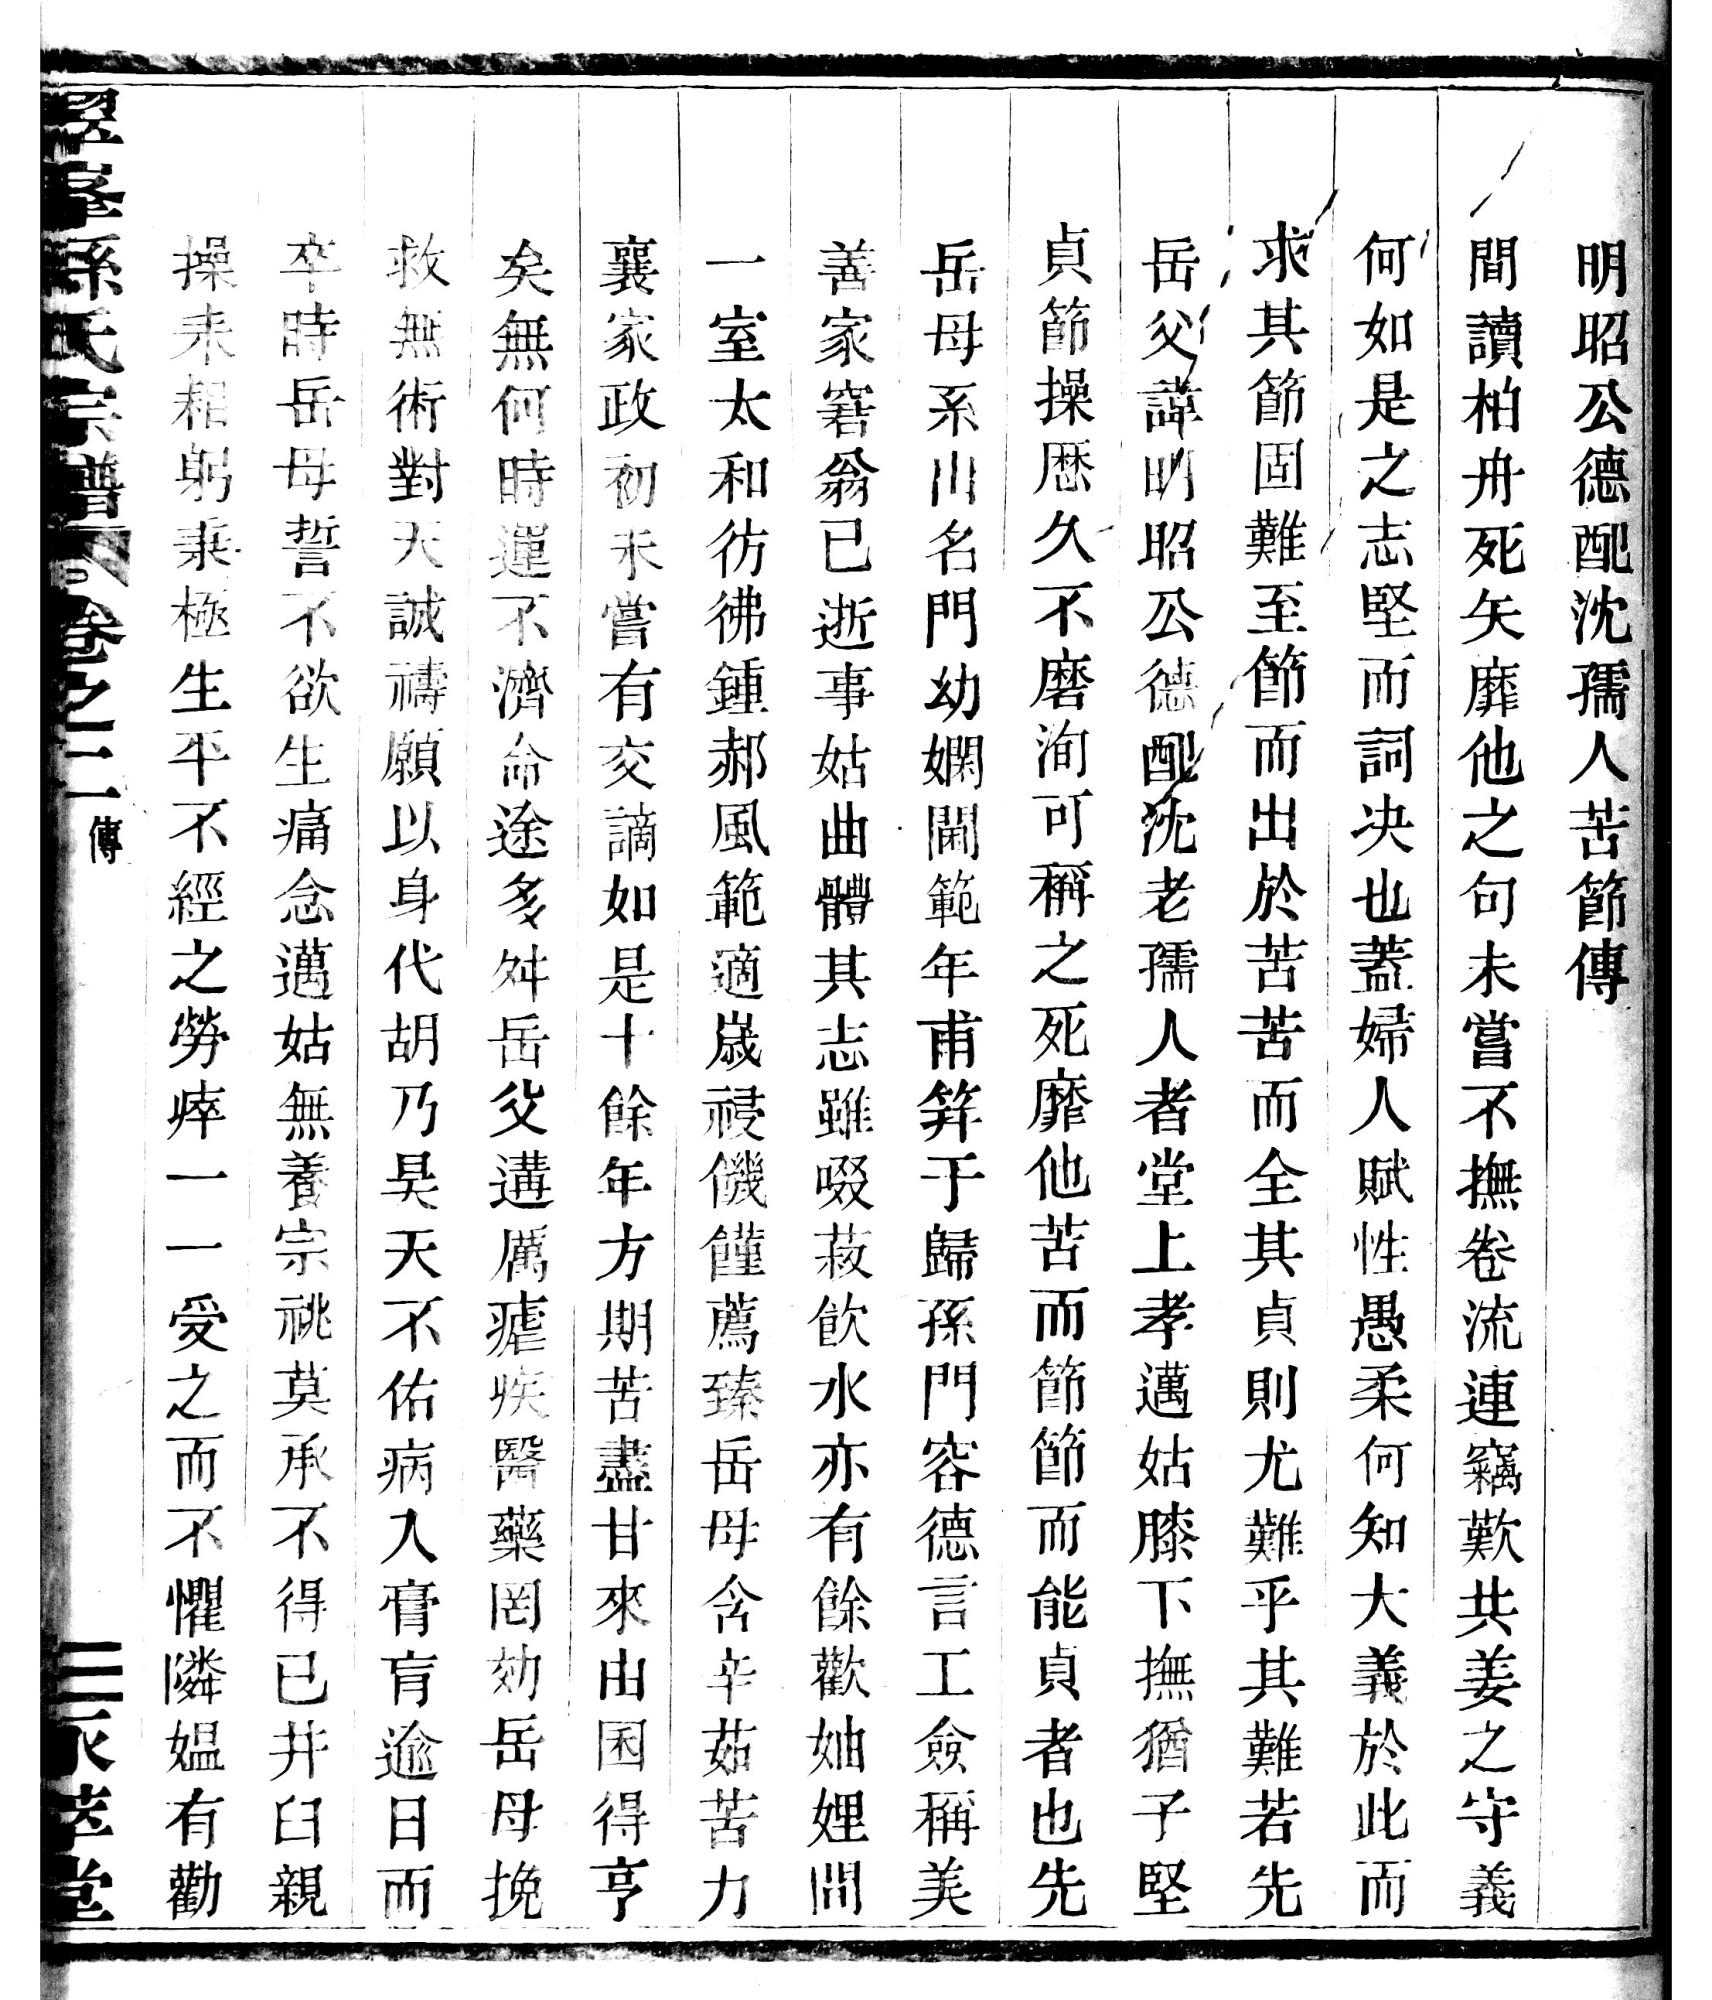 明昭公德配沈孺人苦節傳
間讀柏舟死矢靡他之句未嘗不撫卷流連竊歎共姜之守義
何如是之志堅而詞决也蓋婦人賦性愚柔何知大義於此而
求其節固難至節而出於苦苦而全其貞則尤難乎其難若先
岳父諱明昭公德配沈老孺人者堂上孝邁姑膝下撫猶子堅
貞節操歷久不磨洵可稱之死靡他苦而節節而能貞者也先
岳母系川名門幼嫻閫範年甫笄于歸孫門容德言工僉稱美
善家窘翁已逝事姑曲體其志雖啜菽飲水亦有餘歡妯娌間
一室太和彷彿鍾郝風範適歲祲饑饉薦臻岳母含辛茹苦力
襄家政初未嘗有交謫如是十餘年方期苦盡甘來由困得亨
矣無何時運不濟命途多舛岳父遘厲瘧疾醫藥罔効岳母挽
救無術對天誠禱願以身代胡乃昊天不佑病入膏肓逾日而
卒時岳母誓不欲生痛念邁姑無養宗祧莫承不得已井臼親
操耒耜躬秉極生平不經之勞瘁一一受之而不懼隣媼有勸
孫氏宗譜 卷之二 傳 三 永萃堂